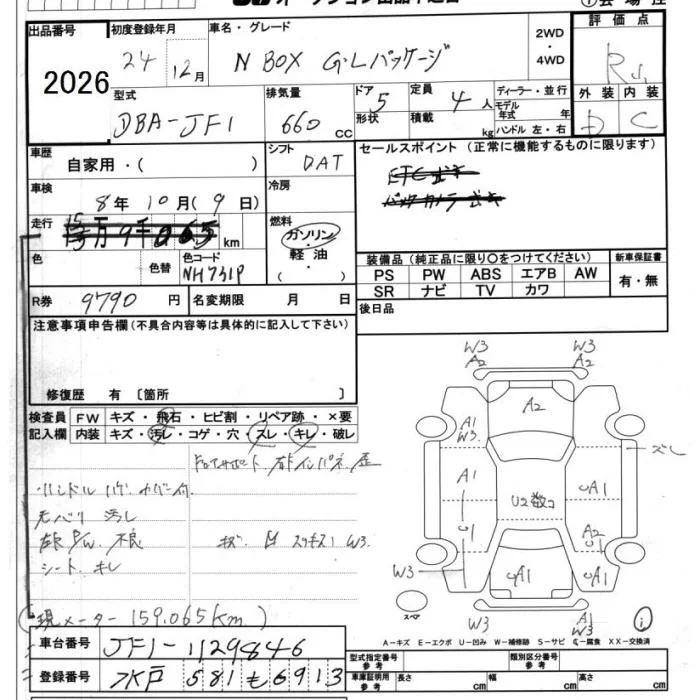 出品番号 初度登録年月 車名・グレード 2WD ・ 4WD 評価点
2026 24 12月 N BOX G・Lパッケージ R
型式 排気量 ドア 定員 ディーラー・並行 外装 内装
DBA-JF1 660 CC 5 4人 モデル年式 年 D C
形状 積載 kg ハンドル 左・右
車歴 自家用・( ) シフト DAT セールスポイント (正常に機能するものに限ります)
車検 8年 10月( 9日) 冷房
走行 万9千065 km 燃料 ガソリン・軽油・( )
色 色替 色コード NH731P
装備品 (純正品に限り○をつけてください) 新車保証書
PS PW ABS エアB AW 有・無
SR ナビ TV カワ
R券 9790 円 名変期限 月 日 後日品
注意事項申告欄 (不具合内容等は具体的に記入して下さい)
修復歴 有 〔箇所 〕
検査員 FW キズ・飛石・ヒビ割・リペア跡・×要
記入欄 内装 キズ・汚レ・コゲ・穴・スレ・キレ・破レ
ハンドル ハゲ カバー付
汚レ
不良 キズ W3
シート キレ
(現メーター 159.065km)
W3 W3
A2 A2
A2
A1 W3 ズレ
A1 U2数コ A1
A2
W3 A1 A1
W3 A1 W3
スペア
A-キズ E-エクボ U-凹み W-補修跡 S-サビ C-腐食 XX-交換済
車台番号 JF1-1129846 型式指定番号 参考 類別区分番号 参考
登録番号 水戸 581 も 6913 車庫証明用 参考 長さ cm 幅 cm 高さ cm